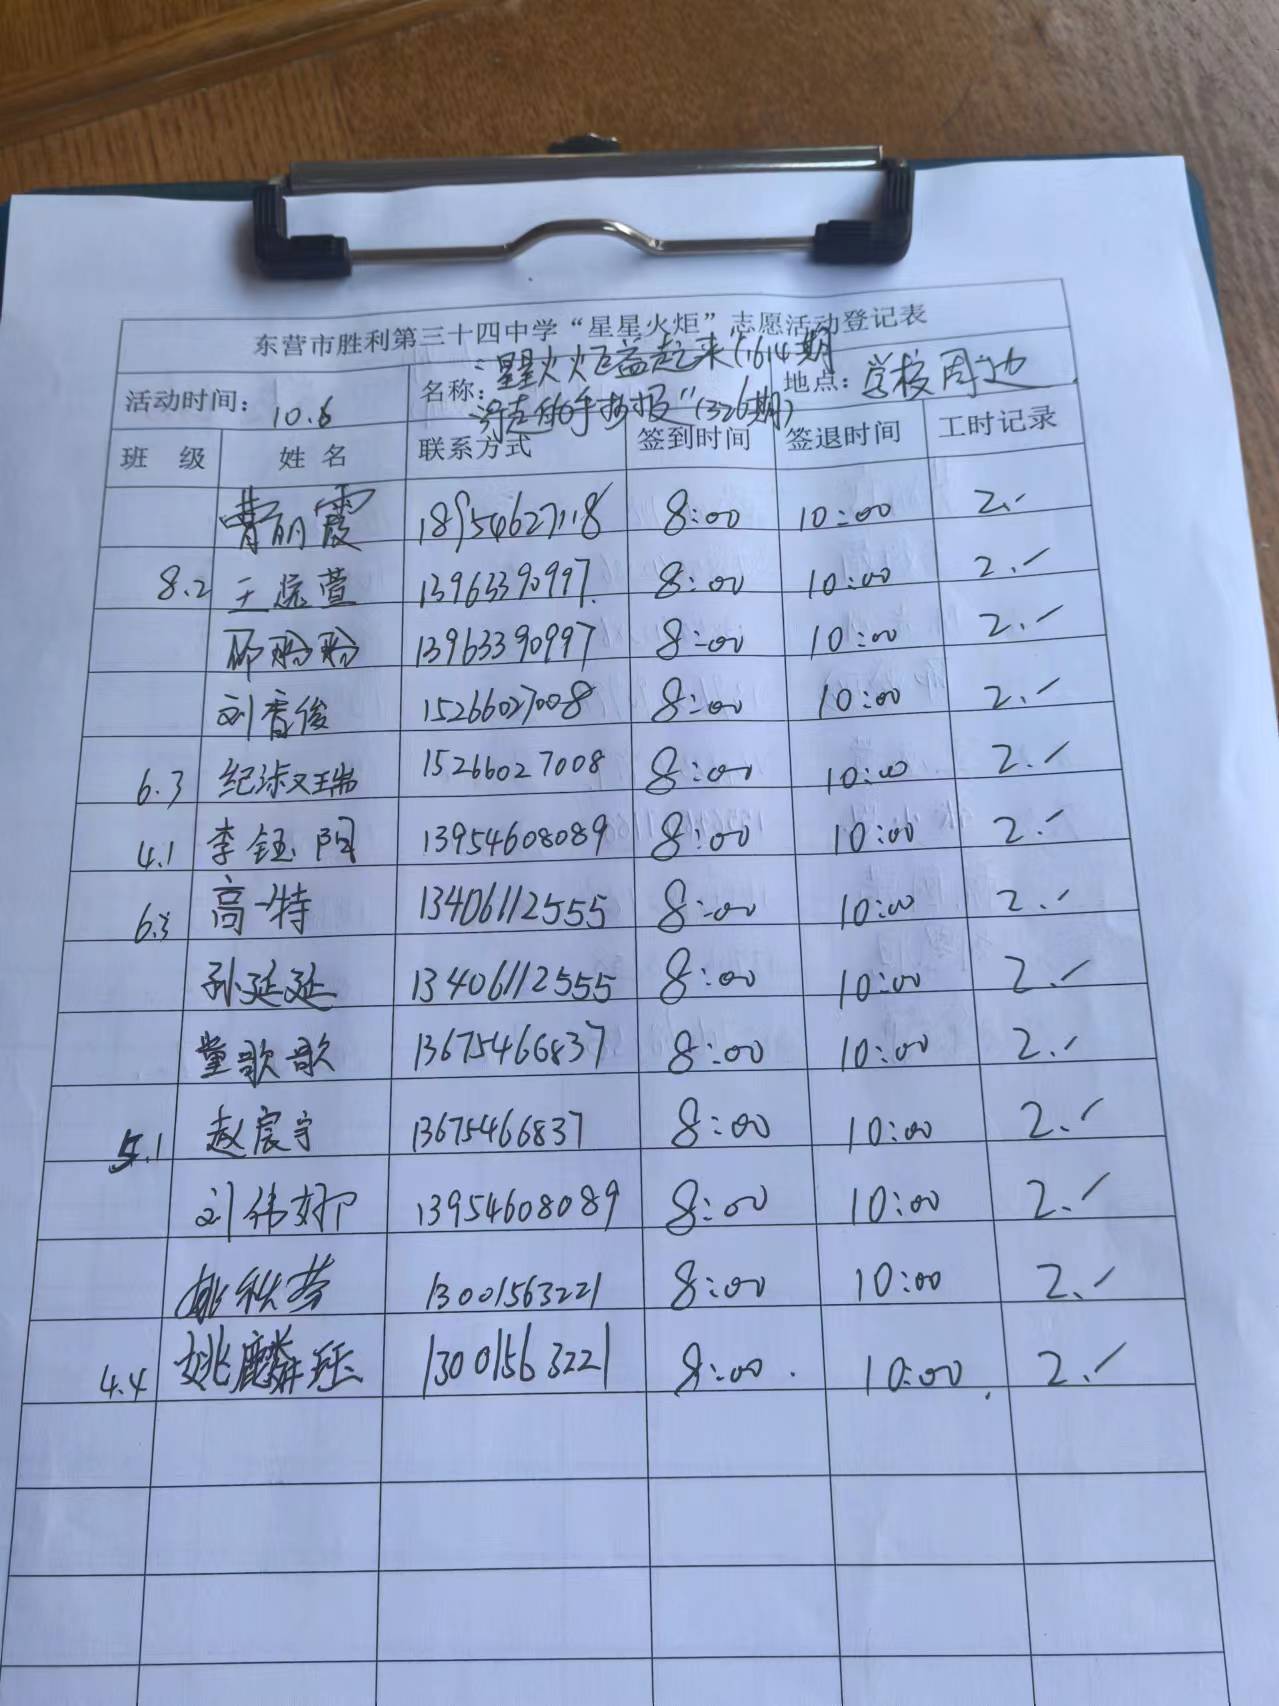 东营市胜利第三十四中学“星星火炬”志愿活动登记表
活动时间: 10.6 名称: 星星火炬益起来(1614期 地点: 学校周边
手抄报”(326期)
班 级 姓 名 联系方式 签到时间 签退时间 工时记录
曹丽霞 18954627118 8:00 10:00 2.
8.2 王煊萱 13963390997 8:00 10:00 2.
邱盼盼 13963390997 8:00 10:00 2.
刘香俊 15266027008 8:00 10:00 2.
6.3 纪沐瑞 15266027008 8:00 10:00 2.
4.1 李钰阳 13954608089 8:00 10:00 2.
6.3 高一特 13406112555 8:00 10:00 2.
孙延延 13406112555 8:00 10:00 2.
董歌歌 13675466837 8:00 10:00 2.
5.1 赵宸宇 13675466837 8:00 10:00 2.
刘伟娜 13954608089 8:00 10:00 2.
姚秋苓 13001563221 8:00 10:00 2.
4.4 姚麟珏 13001563221 8:00 10:00 2.